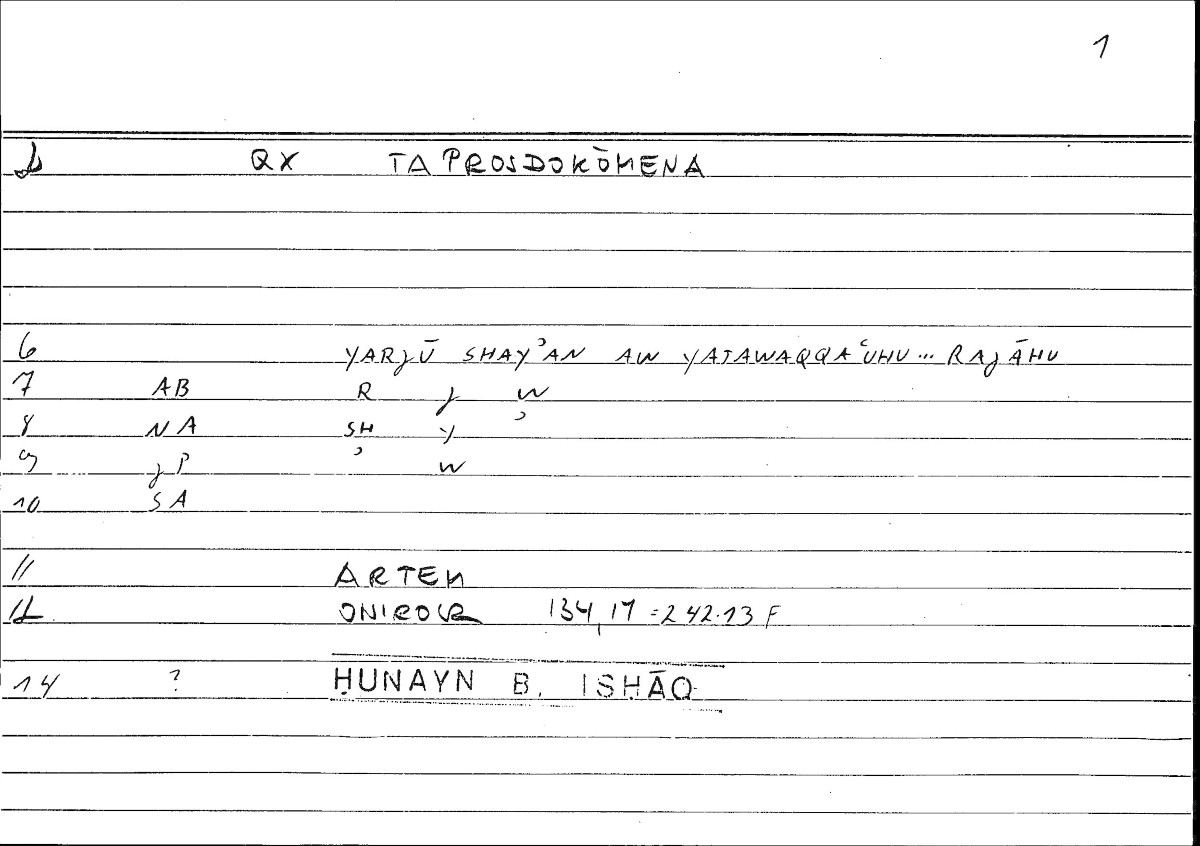 1
2 QX TA PROSDOKŌMENA
6 YARJŪ SHAYʾAN AW YATAWAQQAʿUHU... RAJĀHU
7 AB R J W
8 NA SH Y ʾ
9 JP ʾ W
10 SA
11 ARTEM
12 ONIROCR 134,17 = 242.13 F
14 ? ḤUNAYN B. ISḤĀQ